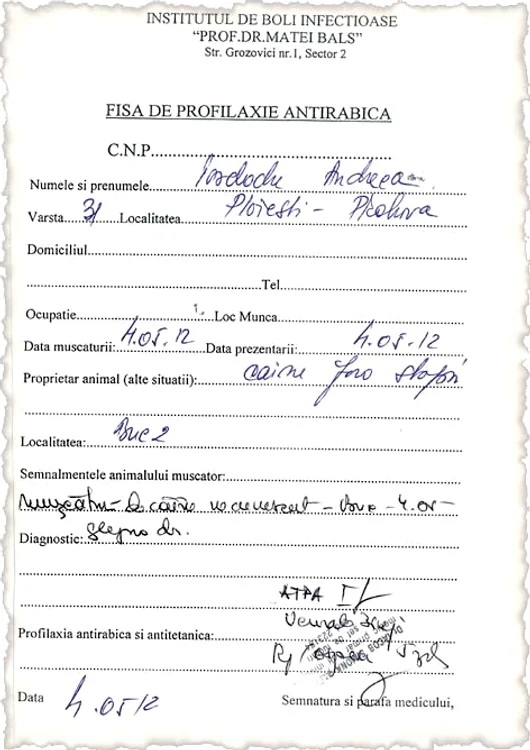 INSTITUTUL DE BOLI INFECTIOASE
“PROF.DR.MATEI BALS”
Str. Grozovici nr.1, Sector 2
FISA DE PROFILAXIE ANTIRABICA
C.N.P
Numele si prenumele Iordache Andreea
Varsta 31 Localitatea Ploiesti - Prahova
Domiciliul
Tel
Ocupatie Loc Munca
Data muscaturii: 4.05.12 Data prezentarii: 4.05.12
Proprietar animal (alte situatii): caine fara stapan
Localitatea: Buc 2
Semnalmentele animalului muscator:
Muşcătu - caine necunoscut - Buc - 4.05 -
Diagnostic: dr.
ATPA
Profilaxia antirabica si antitetanica:
Data 4.05 12
Semnatura si parafa medicului,